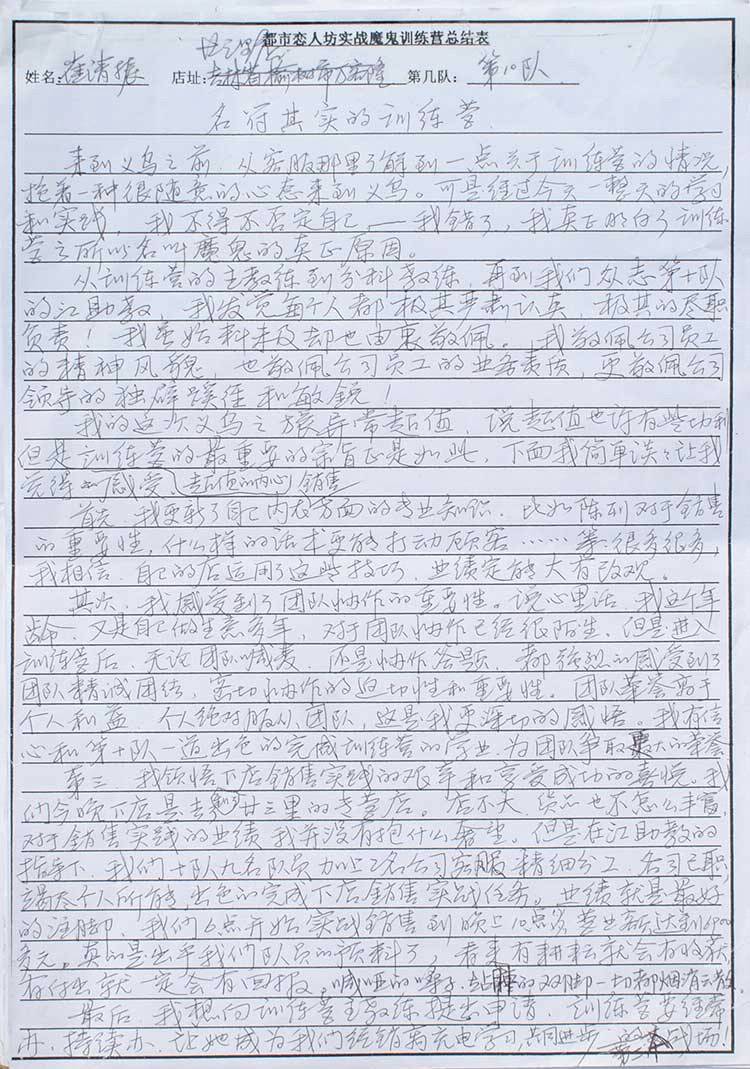 都市恋人坊实战魔鬼训练营总结表
姓名:崔清振 店址: 第几队: 第10队
名符其实的训练营
来到义乌之前,从客服那里了解到一点关于训练营的情况,
抱着一种很随意的心态来到义乌。可是经过今天一整天的学习
和实践,我不得不否定自己——我错了,我真正明白了训练
营之所以名叫魔鬼的真正原因。
从训练营的主教练到分科教练,再到我们众志第十队
的江助教,我发觉每个人都极其严肃认真,极其的尽职
负责!我虽始料未及却也由衷敬佩。我敬佩公司员工
的精神风貌,也敬佩公司员工的业务素质,更敬佩公司
领导的独辟蹊径和敏锐!
我的这次义乌之旅异常超值,说超值也许有些功利
但是训练营的最重要的宗旨正是如此,下面我简单谈谈让我
觉得和感受超值的内心销售
首先,我更新了自己内衣方面的专业知识,比如陈列对于销售
的重要性,什么样的话术更能打动顾客……等很多很多,
我相信,自己的店运用了这些技巧,业绩定能大有改观。
其次,我感受到了团队协作的重要性。说心里话,我这个年
龄,又是自己做生意多年,对于团队协作已经很陌生,但是进入
训练营后,无论团队喊麦,还是协作答题,都强烈的感受到了
团队精诚团结,密切协作的迫切性和重要性。团队荣誉高于
个人利益,个人绝对服从团队,这是我更深切的感悟。我有信
心和第十队一道出色的完成训练营的学业,为团队争取最大的荣誉
第三,我领悟下店销售实践的艰辛和享受成功的喜悦。我
们今晚下店是去廿三里的专营店。店不大,货品也不怎么丰富,
对于销售实践的业绩我并没有抱什么奢望。但是在江助教的
指导下,我们十队九名队员加上2名公司客服精细分工,各司己职
竭尽个人所能,出色的完成下店销售实践任务。业绩就是最好
的注脚,我们6点开始实践销售到晚上10点多营业额达到6900
多元。真的是出乎我们队员的预料了,看来有耕耘就会有收获,
有付出就一定会有回报,喊哑的嗓子,站肿的双脚一切都烟消云散
最后,我想向训练营主教练提出申请,训练营要经常
办,持续办,让她成为我们经销商充电学习,共同进步的战场!